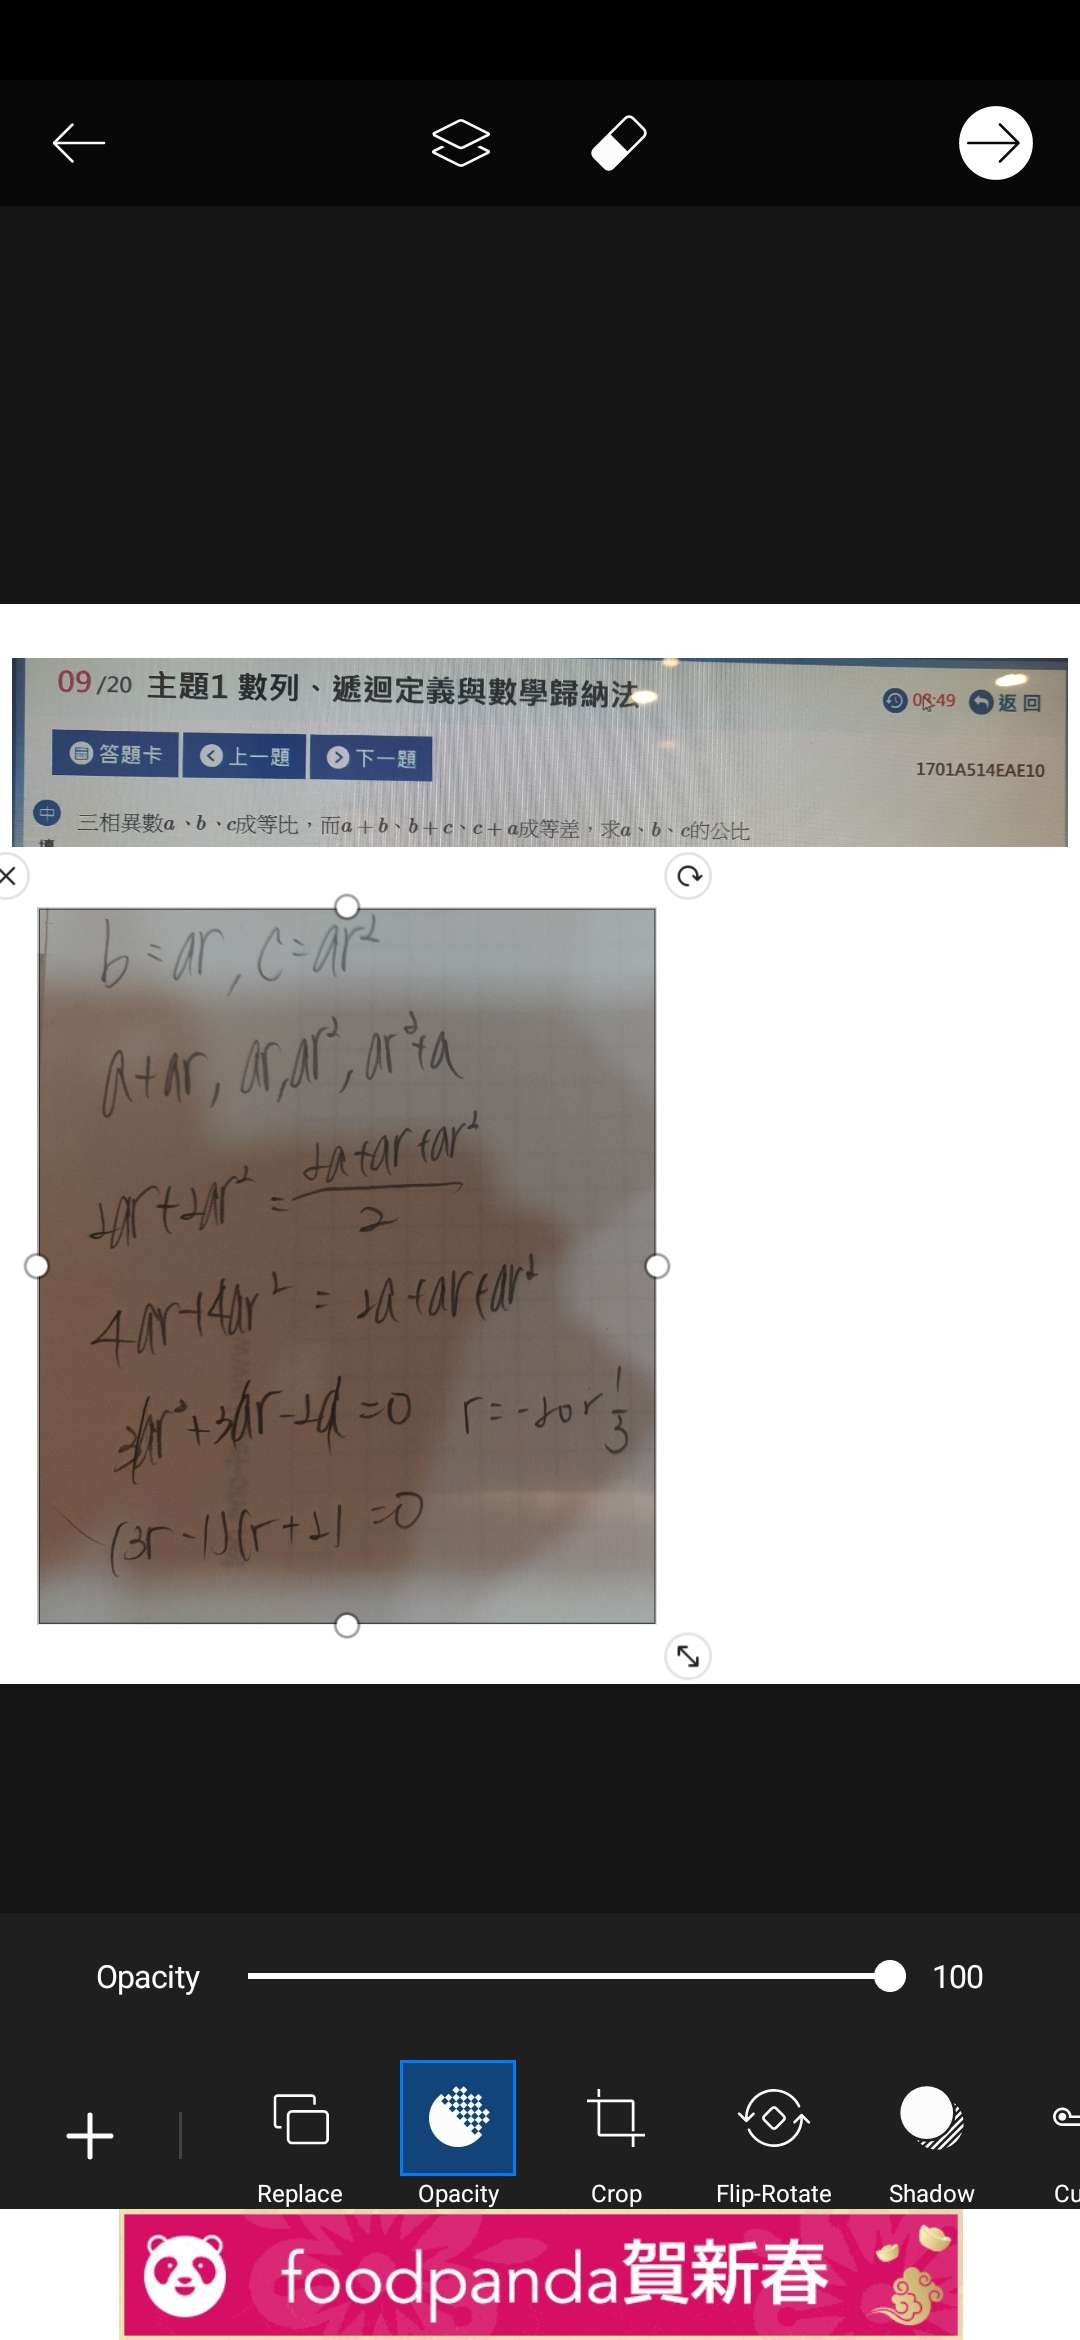 09/20 主題1 數列、遞迴定義與數學歸納法
08:49 返回
答題卡 上一題 下一題
1701A514EAE10
中 三相異數a、b、c成等比，而a+b、b+c、c+a成等差，求a、b、c的公比
b=ar, c=ar²
a+ar, ar,ar², ar²+a
2ar+2ar² = (2a+ar+ar²)/2
4ar+4ar² = 2a+ar+ar²
3ar²+3ar-2a=0 r=-2 or 1/3
(3r-1)(r+2)=0
Opacity 100
Replace Opacity Crop Flip-Rotate Shadow Cu
foodpanda賀新春